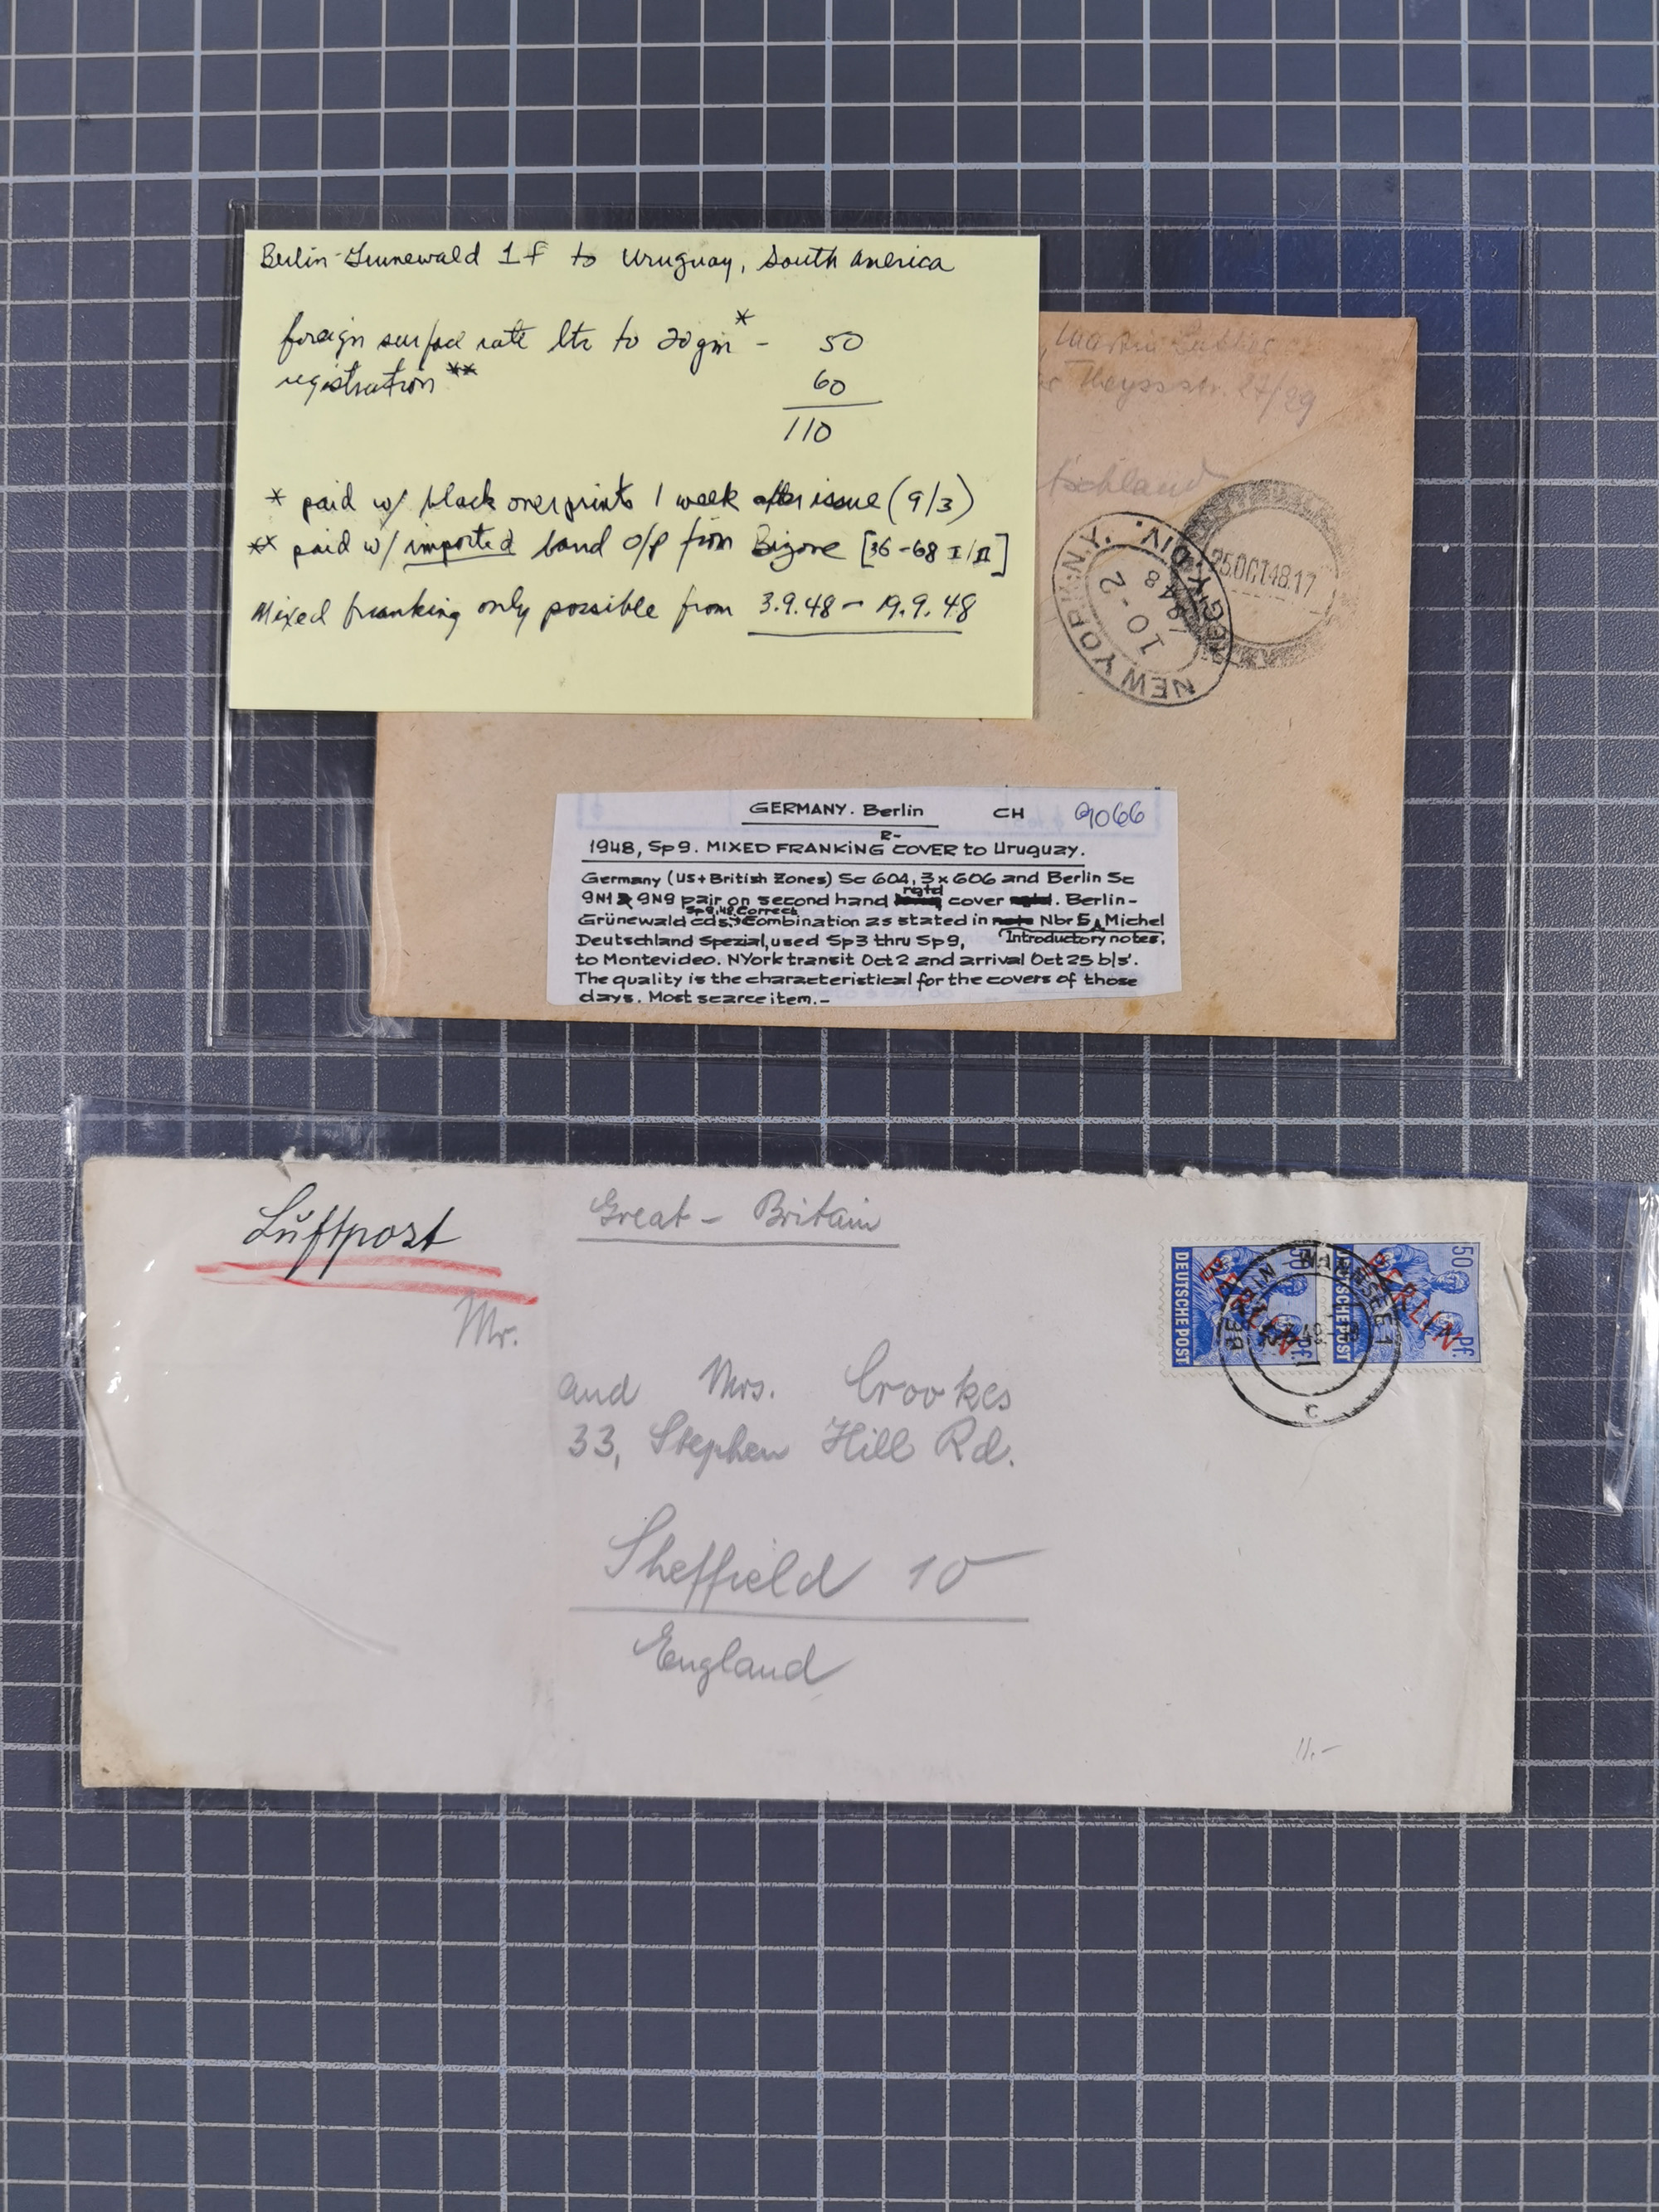 Berlin-Grunewald 1 f to Uruguay, South America
foreign surface rate ltr to 20gm * - 50
registration ** 60
110
* paid w/ black overprints 1 week after issue (9/3)
** paid w/ imported band o/p from Bizone [36-68 I/II]
Mixed franking only possible from 3.9.48 - 19.9.48
Theyssstr. 27/29
tschland
25OCT48.17
NEW YORK, N.Y. REG'Y. DIV.
10-2
1948
GERMANY. Berlin CH 9066
1948, Sp9. MIXED FRANKING R- COVER to Uruguay.
Germany (US+British Zones) Sc 604, 3x606 and Berlin Sc
9N1 9N9 pair on second hand regtd cover. Berlin-
Grünewald cds, Sp9,48 Correct Combination as stated in Nbr 5, Michel
Deutschland Spezial, used Sp3 thru Sp9, Introductory notes,
to Montevideo. NYork transit Oct2 and arrival Oct25 b/s'.
The quality is the characteristical for the covers of those
days. Most scarce item.-
Luftpost
Great - Britain
Mr.
and Mrs. Crookes
33, Stephen Hill Rd.
Sheffield 10
England
DEUTSCHE POST 50 Pf. BERLIN
DEUTSCHE POST 50 Pf. BERLIN
BERLIN-WANNSEE 1
c
11.-